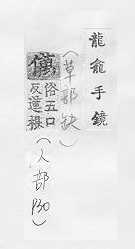 龍龕手鏡
(草部缺)
俗五口
反
(人部130)